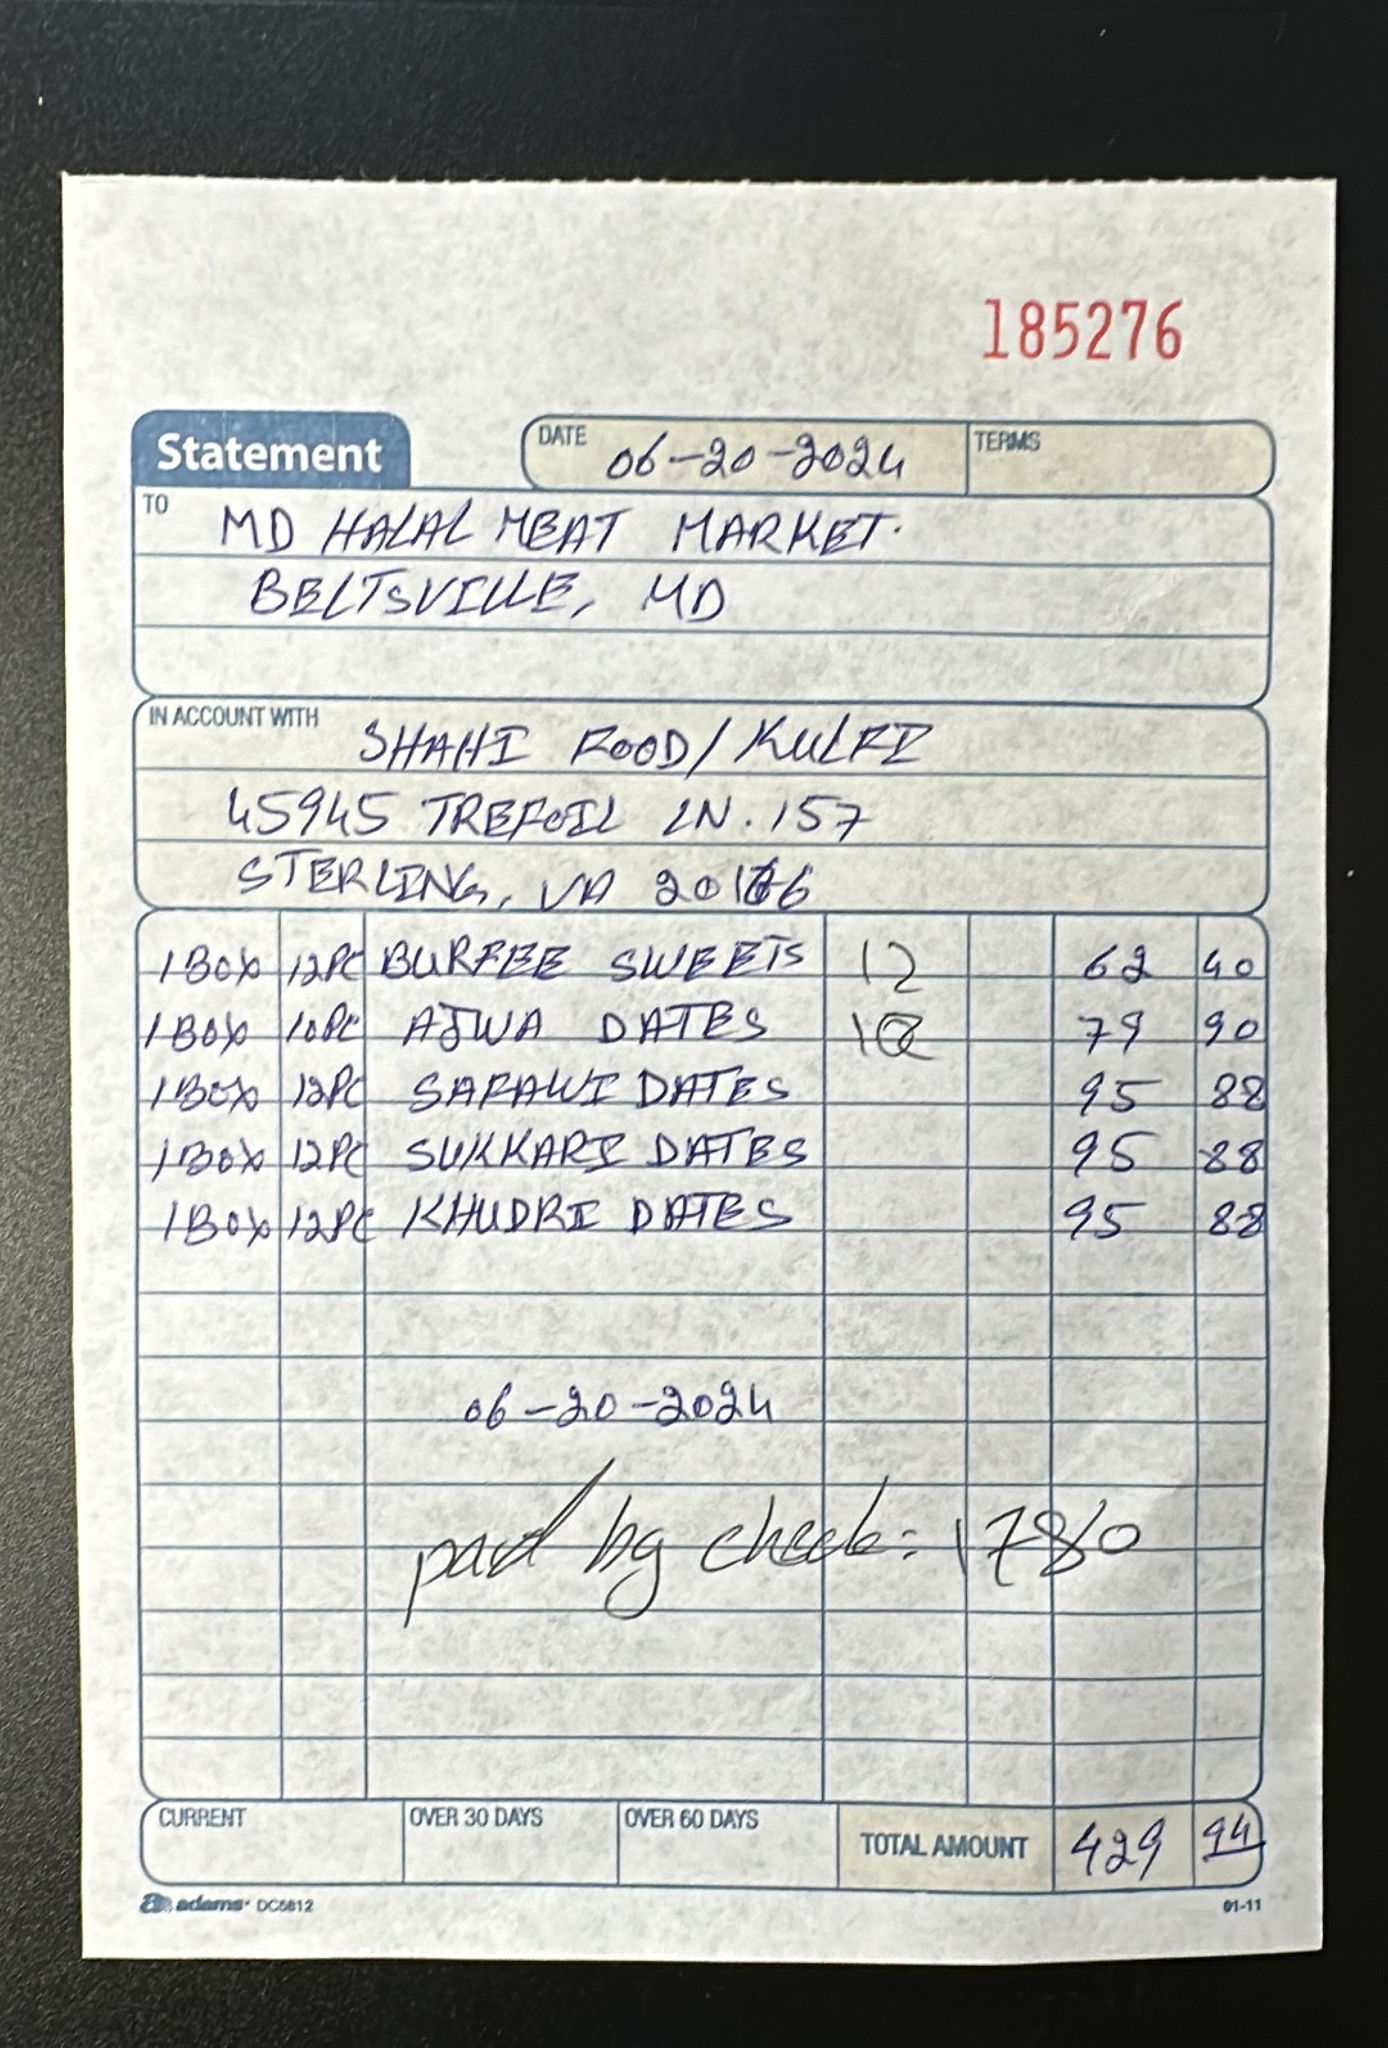 185276
Statement
DATE 06-20-2024 TERMS
TO MD HALAL MEAT MARKET.
BELTSVILLE, MD
IN ACCOUNT WITH SHAHI FOOD/KULFI
45945 TREFOIL LN. 157
STERLING, VA 20166
1 BOX 12PC BURFEE SWEETS 12 62 40
1 BOX 10PC AJWA DATES 10 79 90
1 BOX 12PC SAFAWI DATES 95 88
1 BOX 12PC SUKKARI DATES 95 88
1 BOX 12PC KHUDRI DATES 95 88
06-20-2024
paid by check: 1780
CURRENT OVER 30 DAYS OVER 60 DAYS TOTAL AMOUNT 429 94
adams DC5812 01-11